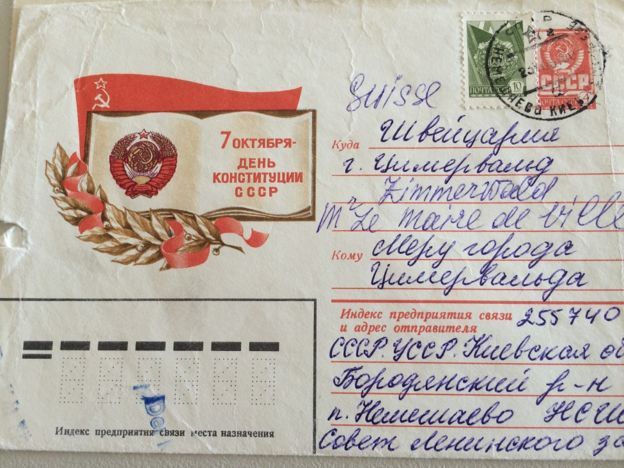 7 ОКТЯБРЯ-
ДЕНЬ
КОНСТИТУЦИИ
СССР
10
ПОЧТА СССР
СССР
ПОЧТА
Suisse
Куда Швейцария
г. Цимервальд
Zimmerwald
Mr Le maire de ville
Кому Меру города
Цимервальда
Индекс предприятия связи 255740
и адрес отправителя
СССР. УССР. Киевская о
Бородянский р-н
п. Немешаево НСШ
Совет Ленинского за
Индекс предприятия связи места назначения